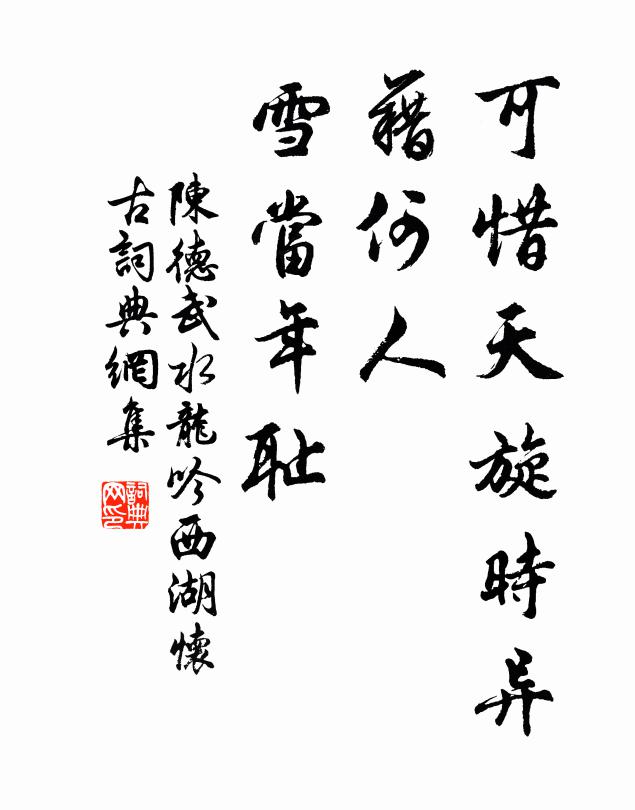 可惜天旋時异
藉何人
雪當年耻
陳德武水龍吟西湖懷
古詞典網集
詞典网印